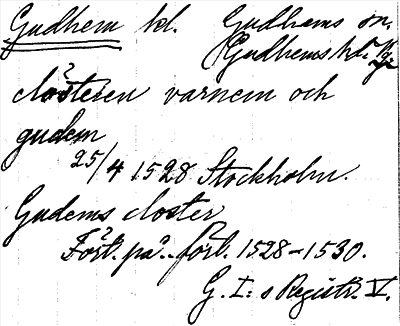 Gudhem kl. Gudhems sn.
Gudhems hd. Vg.
clösteren varnem och
gudem
25/4 1528 Stockholm.
Gudems closter
Fört. på förl. 1528-1530.
G. I:s Registr. V.